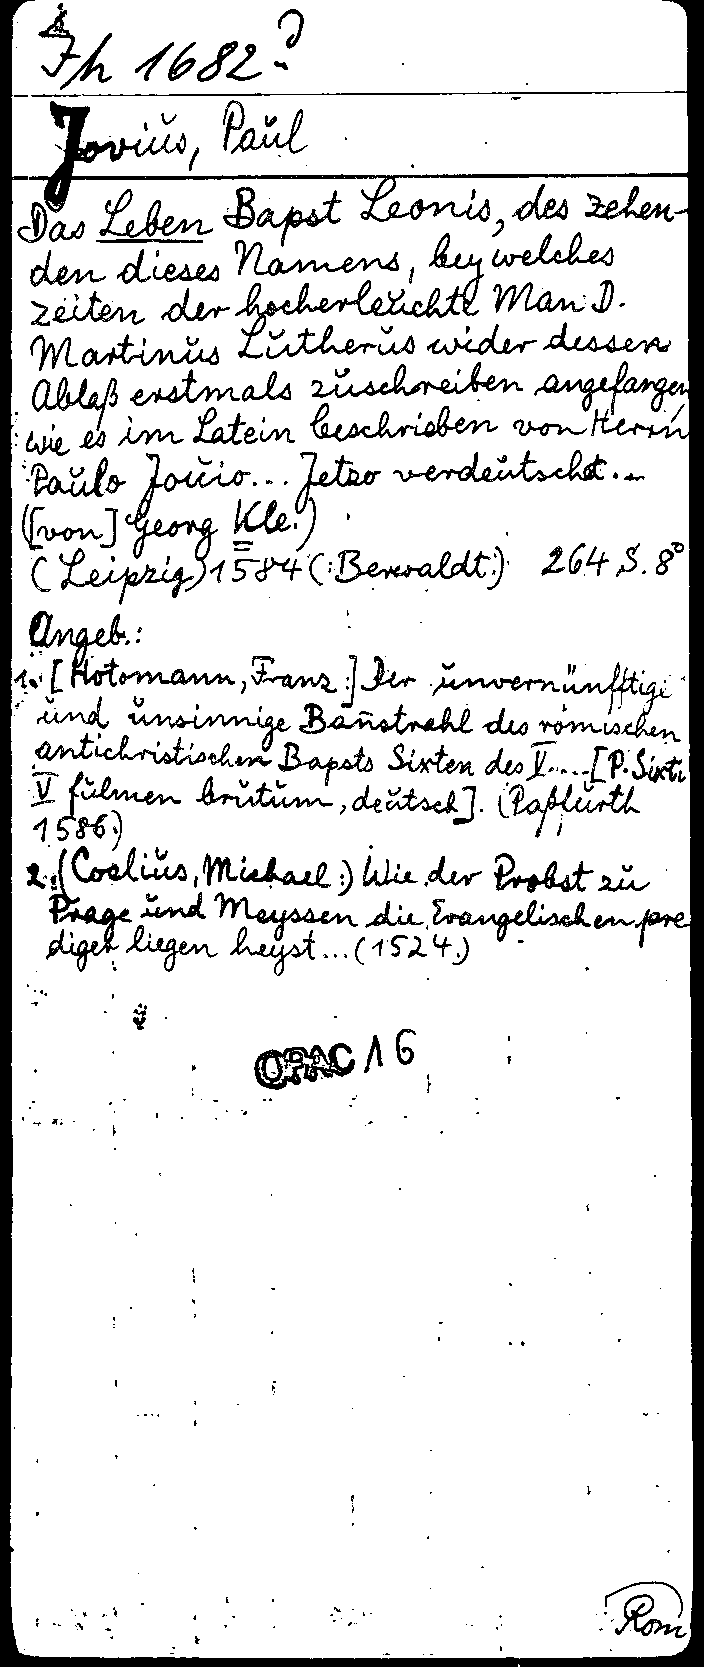 Jh 1682?
Jovius, Paul
Das Leben Bapst Leonis, des zehen-
den dieses Namens, bey welches
zeiten der hocherleuchte Man D.
Martinus Lutherus wider dessen
Ablaß erstmals zuschreiben angefangen,
wie es im Latein beschrieben von Herrn
Paulo Jouio... Jetzo verdeutscht...
([von] Georg Kle.)
(Leipzig) 1584 (: Berwaldt.) 264 S. 8°
Angeb.:
1. [Hotomann, Franz:] Der unvernünfftige
und unsinnige Bañstrahl des römischen
antichristischen Bapsts Sixten des V.... [P. Sixti
V fulmen brutum, deutsch]. (Paßfurth
1586.)
2. (Coelius, Michael:) Wie der Probst zu
Prage und Meyssen die Evangelischen pre
diger liegen heyst... (1524.)
OPAC 16
Rom